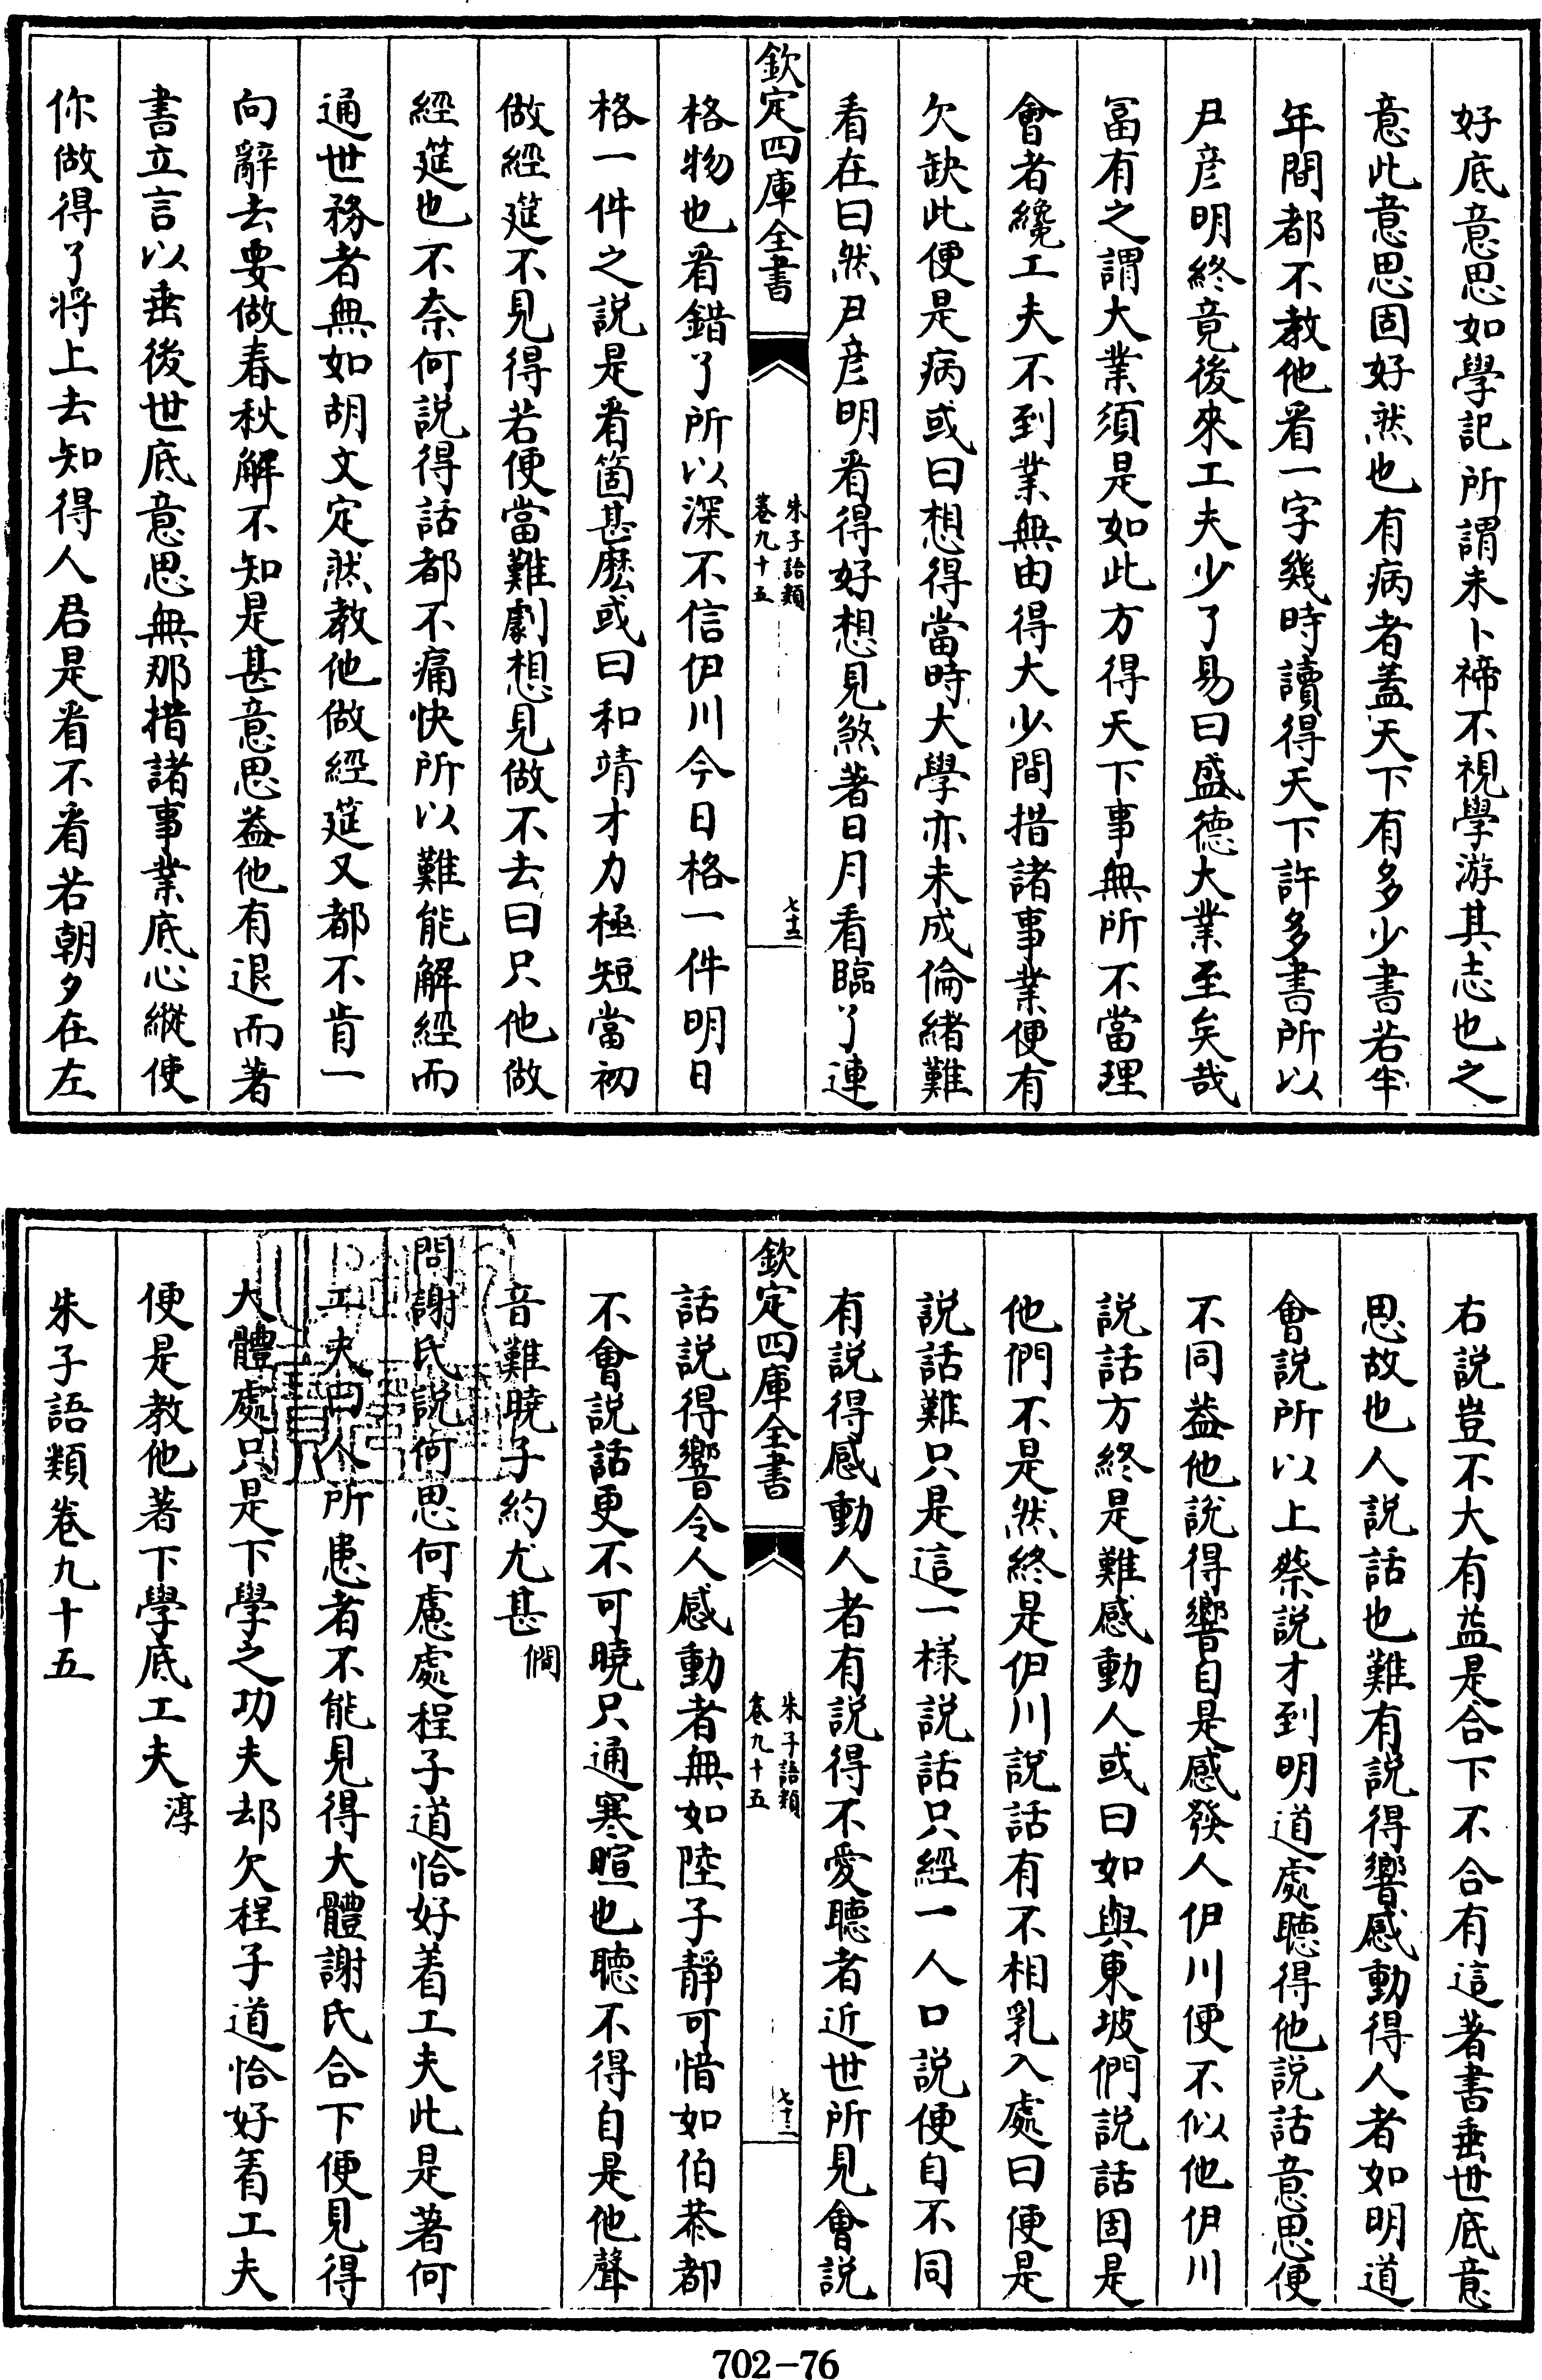 好底意思如學記所謂未卜禘不視學游其志也之
意此意思固好然也有病者蓋天下有多少書若半
年間都不教他看一字幾時讀得天下許多書所以
尹彦明終竟後來工夫少了易曰盛德大業至矣哉
富有之謂大業須是如此方得天下事無所不當理
會者纔工夫不到業無由得大少間措諸事業便有
欠缺此便是病或曰想得當時大學亦未成倫緒難
看在曰然尹彦明看得好想見煞著日月看臨了連
欽定四庫全書
朱子語類
卷九十五
七十三
格物也看錯了所以深不信伊川今日格一件明日
格一件之説是看箇甚麽或曰和靖才力極短當初
做經筵不見得若便當難劇想見做不去曰只他做
經筵也不奈何説得話都不痛快所以難能解經而
通世務者無如胡文定然教他做經筵又都不肯一
向辭去要做春秋解不知是甚意思蓋他有退而著
書立言以垂後世底意思無那措諸事業底心縱使
你做得了將上去知得人君是看不看若朝夕在左
右説豈不大有益是合下不合有這著書垂世底意
思故也人説話也難有説得響感動得人者如明道
會説所以上蔡説才到明道處聽得他説話意思便
不同蓋他說得響自是感發人伊川便不似他伊川
説話方終是難感動人或曰如與東坡們説話固是
他們不是然終是伊川說話有不相乳入處曰便是
説話難只是這一樣説話只經一人口説便自不同
有説得感動人者有説得不愛聽者近世所見會説
欽定四庫全書
朱子語類
卷九十五
七十三
話説得響令人感動者無如陸子靜可惜如伯恭都
不會説話更不可曉只通寒暄也聽不得自是他聲
音難曉子約尤甚 僩
問謝氏説何思何慮處程子道恰好着工夫此是著何
工夫曰人所患者不能見得大體謝氏合下便見得
大體處只是下學之功夫却欠程子道恰好着工夫
便是教他著下學底工夫 淳
朱子語類卷九十五
702-76